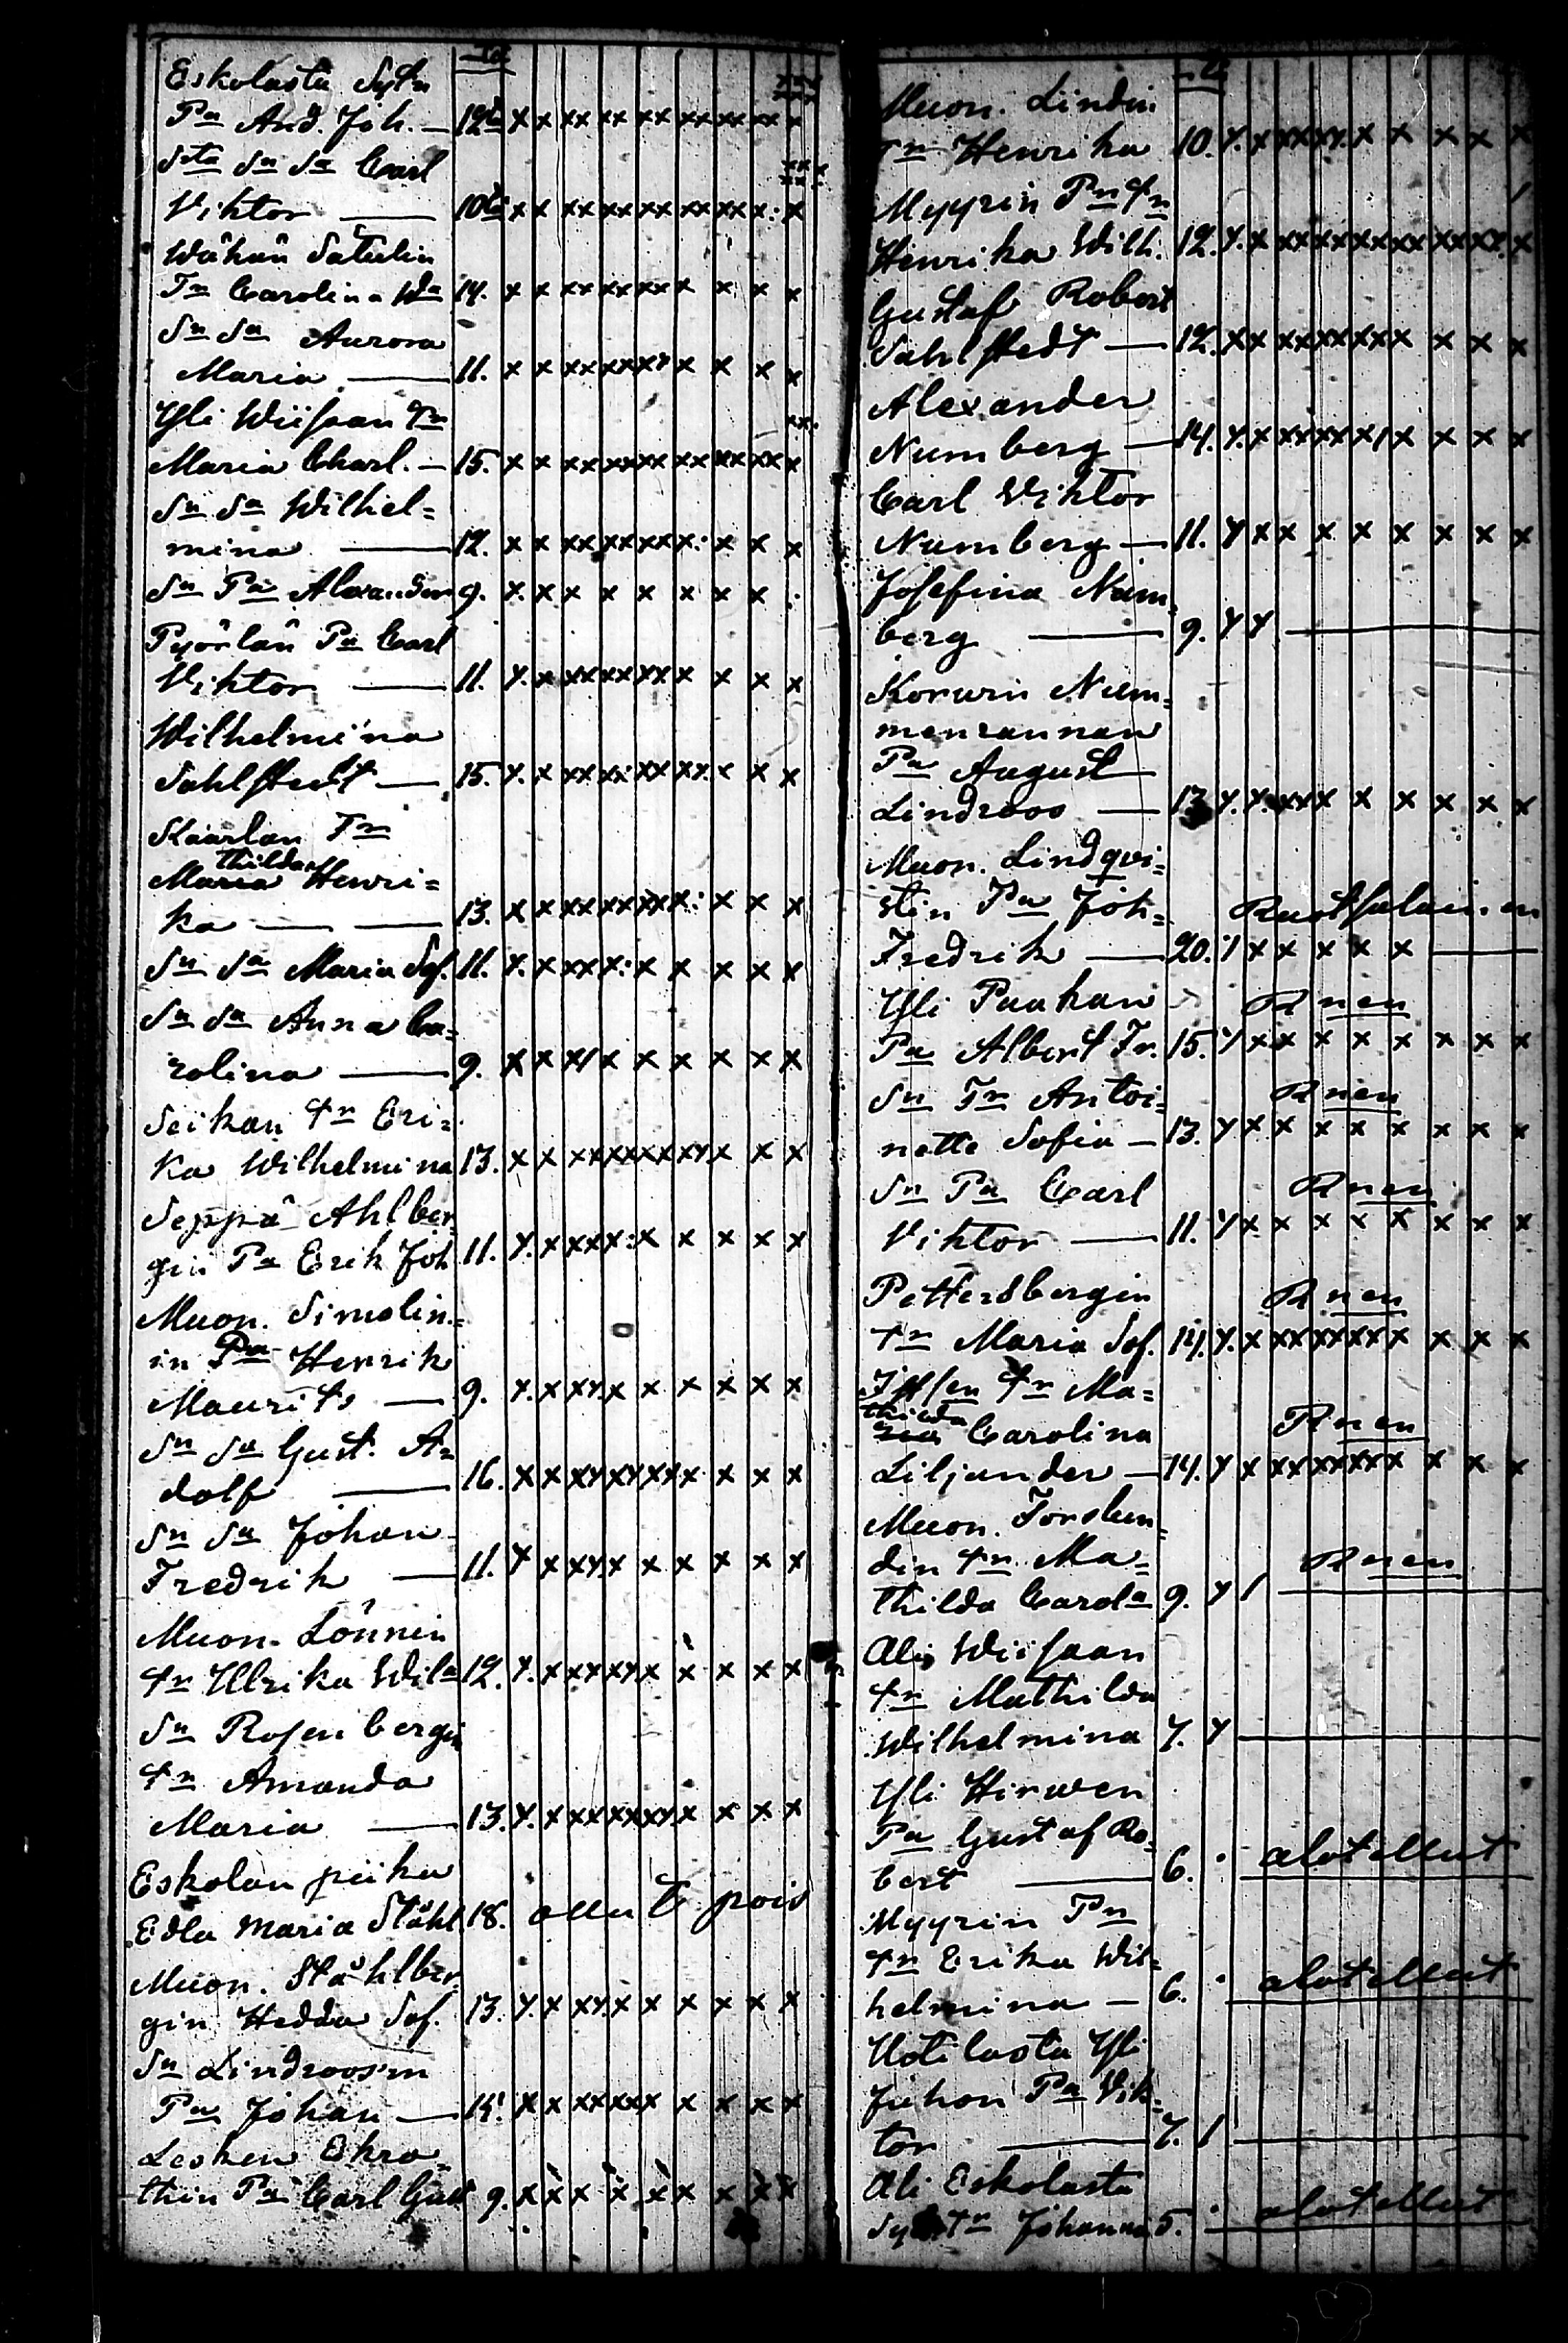 Eskolasta Sytn
Pa And. Joh. — 12 x x xx xx xx xx xx xx x
Sta Sn Sa Carl
Viktor — 10 x x xx xx xx xx xx x: x
Wähän Satulin
Tr Carolina Wa 14. x x xx xx xx x x x x
Sn Sa Aurora
Maria — 11. x x xx xx xx x x x x
Yli Wiisaan Tr
Maria Charl. — 15. x x xx xx xx xx xx xx x
Sn Sa Wilhel=
mina — 12. x x xx xx xx x: x x x
Sn Pa Alexander 9. x. x x x x x x x :
Pyörlän Pa Carl
Viktor — 11. x. x xx xx xx x x x x
Wilhelmina
Sahlstedt — 15. x. x xx x: xx xx. x x x
Kaarlan Tr
thilda
Maria Henri=
ka — — 13. x x xx xx xx x: x x x
Sn Sa Maria Sof. 11. x. x xx x: x x x x x
Sn Sa Anna Ca=
rolina — 9. x x x/ x x x x x x
Seikan Tr Eri=
ka Wilhelmina 13. x x xx xx xx xx. x x x
Seppä Ahlber
gin Pa Erik Joh 11. x. x xx x: x x x x x
Muon. Simolin=
in Pa Henrik
Maurits — 9. x. x xx. x x x x x x
Sn Sa Gust. A=
dolf — 16. x x xx xx xx x x x x
Sn Sa Johan
Fredrik — 11. x x xx. x x x x x x
Muon. Lönnin
Tr Ulrika Wila 12. x. x xx xx x x x x x
Sn Rosenbergin
Tr Amanda
Maria — 13. x. x xx xx xx. x x x x
Eskolan piika
Edla Maria Ståhl 18. pois
Muon. Ståhlber
gin Hedda Sof. 13. x. x xx. x x x x x x
Sn Lindroosin
Pa Johan — x x xx xx x x x x x
Lesken Ekro=
thin Pa Carl Gust 9. x x x x x x x x x
Muon. Lindin
Tr Henrika 10. x. x xx xx. x x x x x
Myyrin Pn Tr
Henrika Wilh. 12. x. x xx xx xx xx xx xx. x
Gustaf Robert
Sahlstedt — 12. x x xx xx xx x x x x
Alexander
Numberg — 14. x. x xx xx x/ x x x x
Carl Viktor
Numberg — 11. x x x x x x x x x
Josefina Num=
berg — 9. x x —
Korwin Num=
menrannan
Pa August
Lindroos — 13 x. x. xx x x x x x x
Muon. Lindqvi=
stin Pa Joh=
Fredrik — 20. / x x x x x —
Yli Paakan Rnen
Pa Albert Fr. 15. x x x x x x x x x
Sn Tr Antoi= Rnen
nette Sofia — 13. x x x x x x x x x
Sn Pa Carl Rnen
Viktor — 11. x x x x x x x x x
Pettersbergin Rnen
Tr Maria Sof. 14. x. x xx xx xx x x x x
Tr Ma=
thilda
ria Carolina Rnen
Liljander — 14. x x xx xx xx x x x x
Muon. Forslun=
din Tr Ma= Rnen
thilda Carola 9. x / —
Ali Wiisaan
Tr Mathilda
Wilhelmina 7. x —
Yli Hirwen
Pa Gustaf Ro=
bert — 6. · alotellut
Myyrin Pn
Tr Erika Wil=
helmina — 6. · alotellut
Uotilasta Yli
Juhon Pa Vik=
tor — 7. / —
Ali Eskolasta
Tr Johanna 5. · alotellut